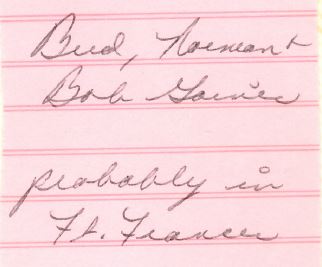 Bud, Norman +
Bob Gaines
probably in
Ft. Frances